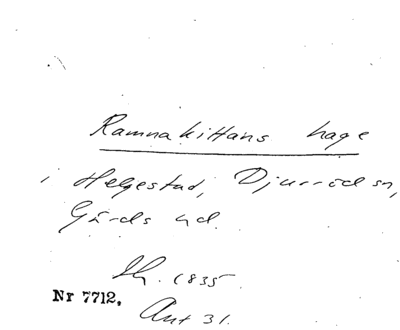 Ramnakittans hage
i Helgestad, Djurröd sn,
Gärds hd.
Sk. 1835.
Nr 7712.
Ant 31.